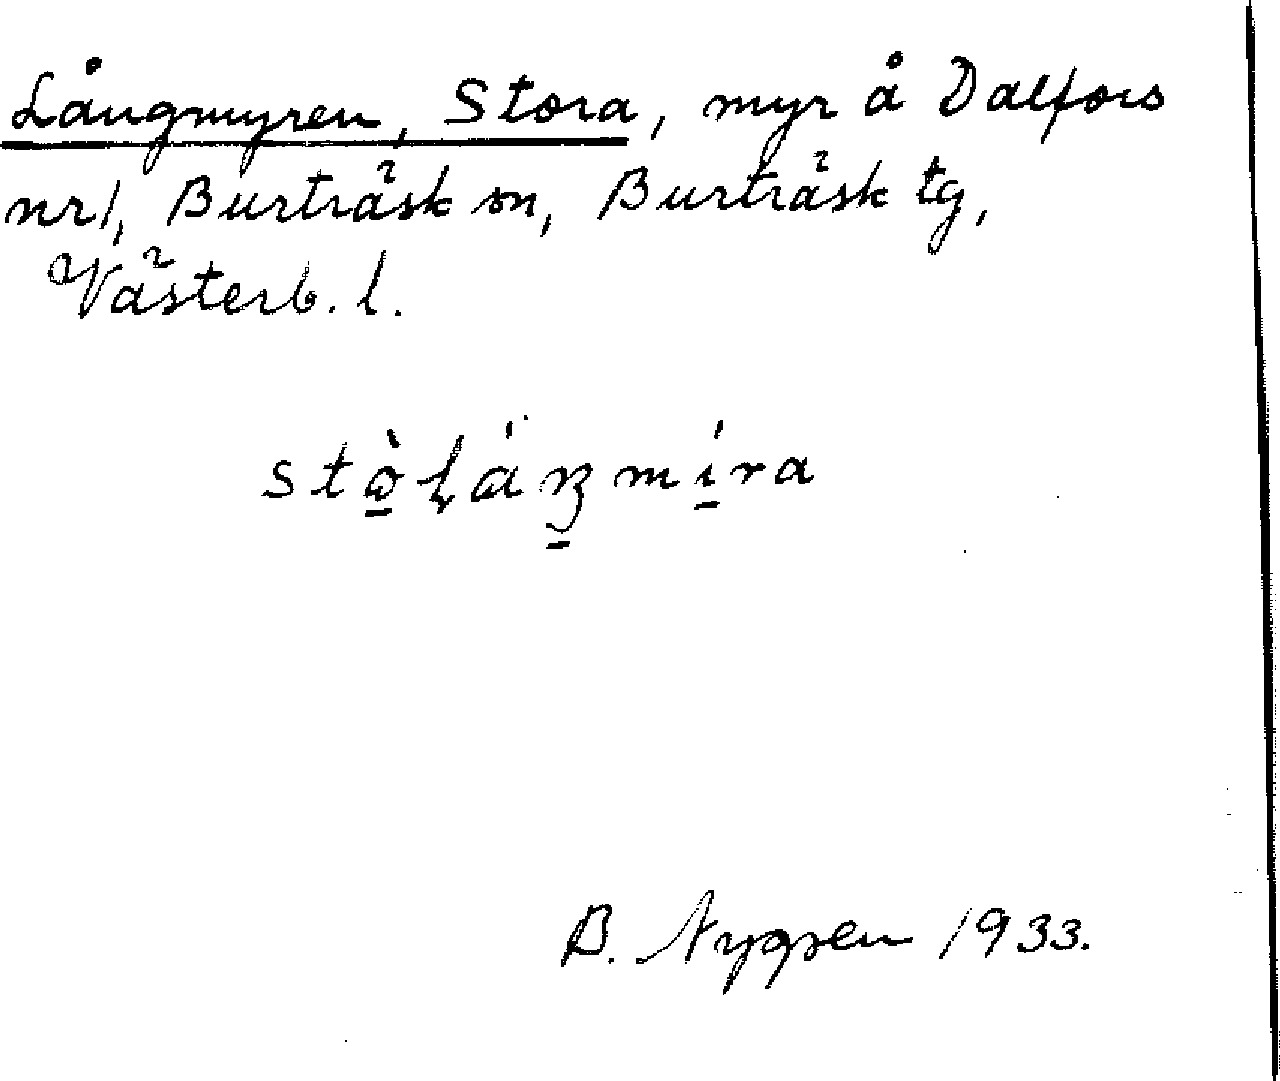 Långmyren, Stora, myr å Dalfors
nr 1, Burträsk sn, Burträsk tg,
Västerb. l.
B. Nygren 1933.